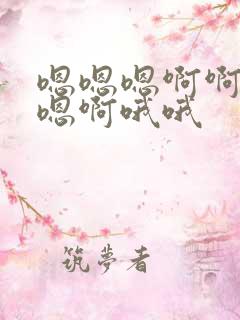 嗯嗯嗯啊啊
嗯啊哦哦
筑夢者